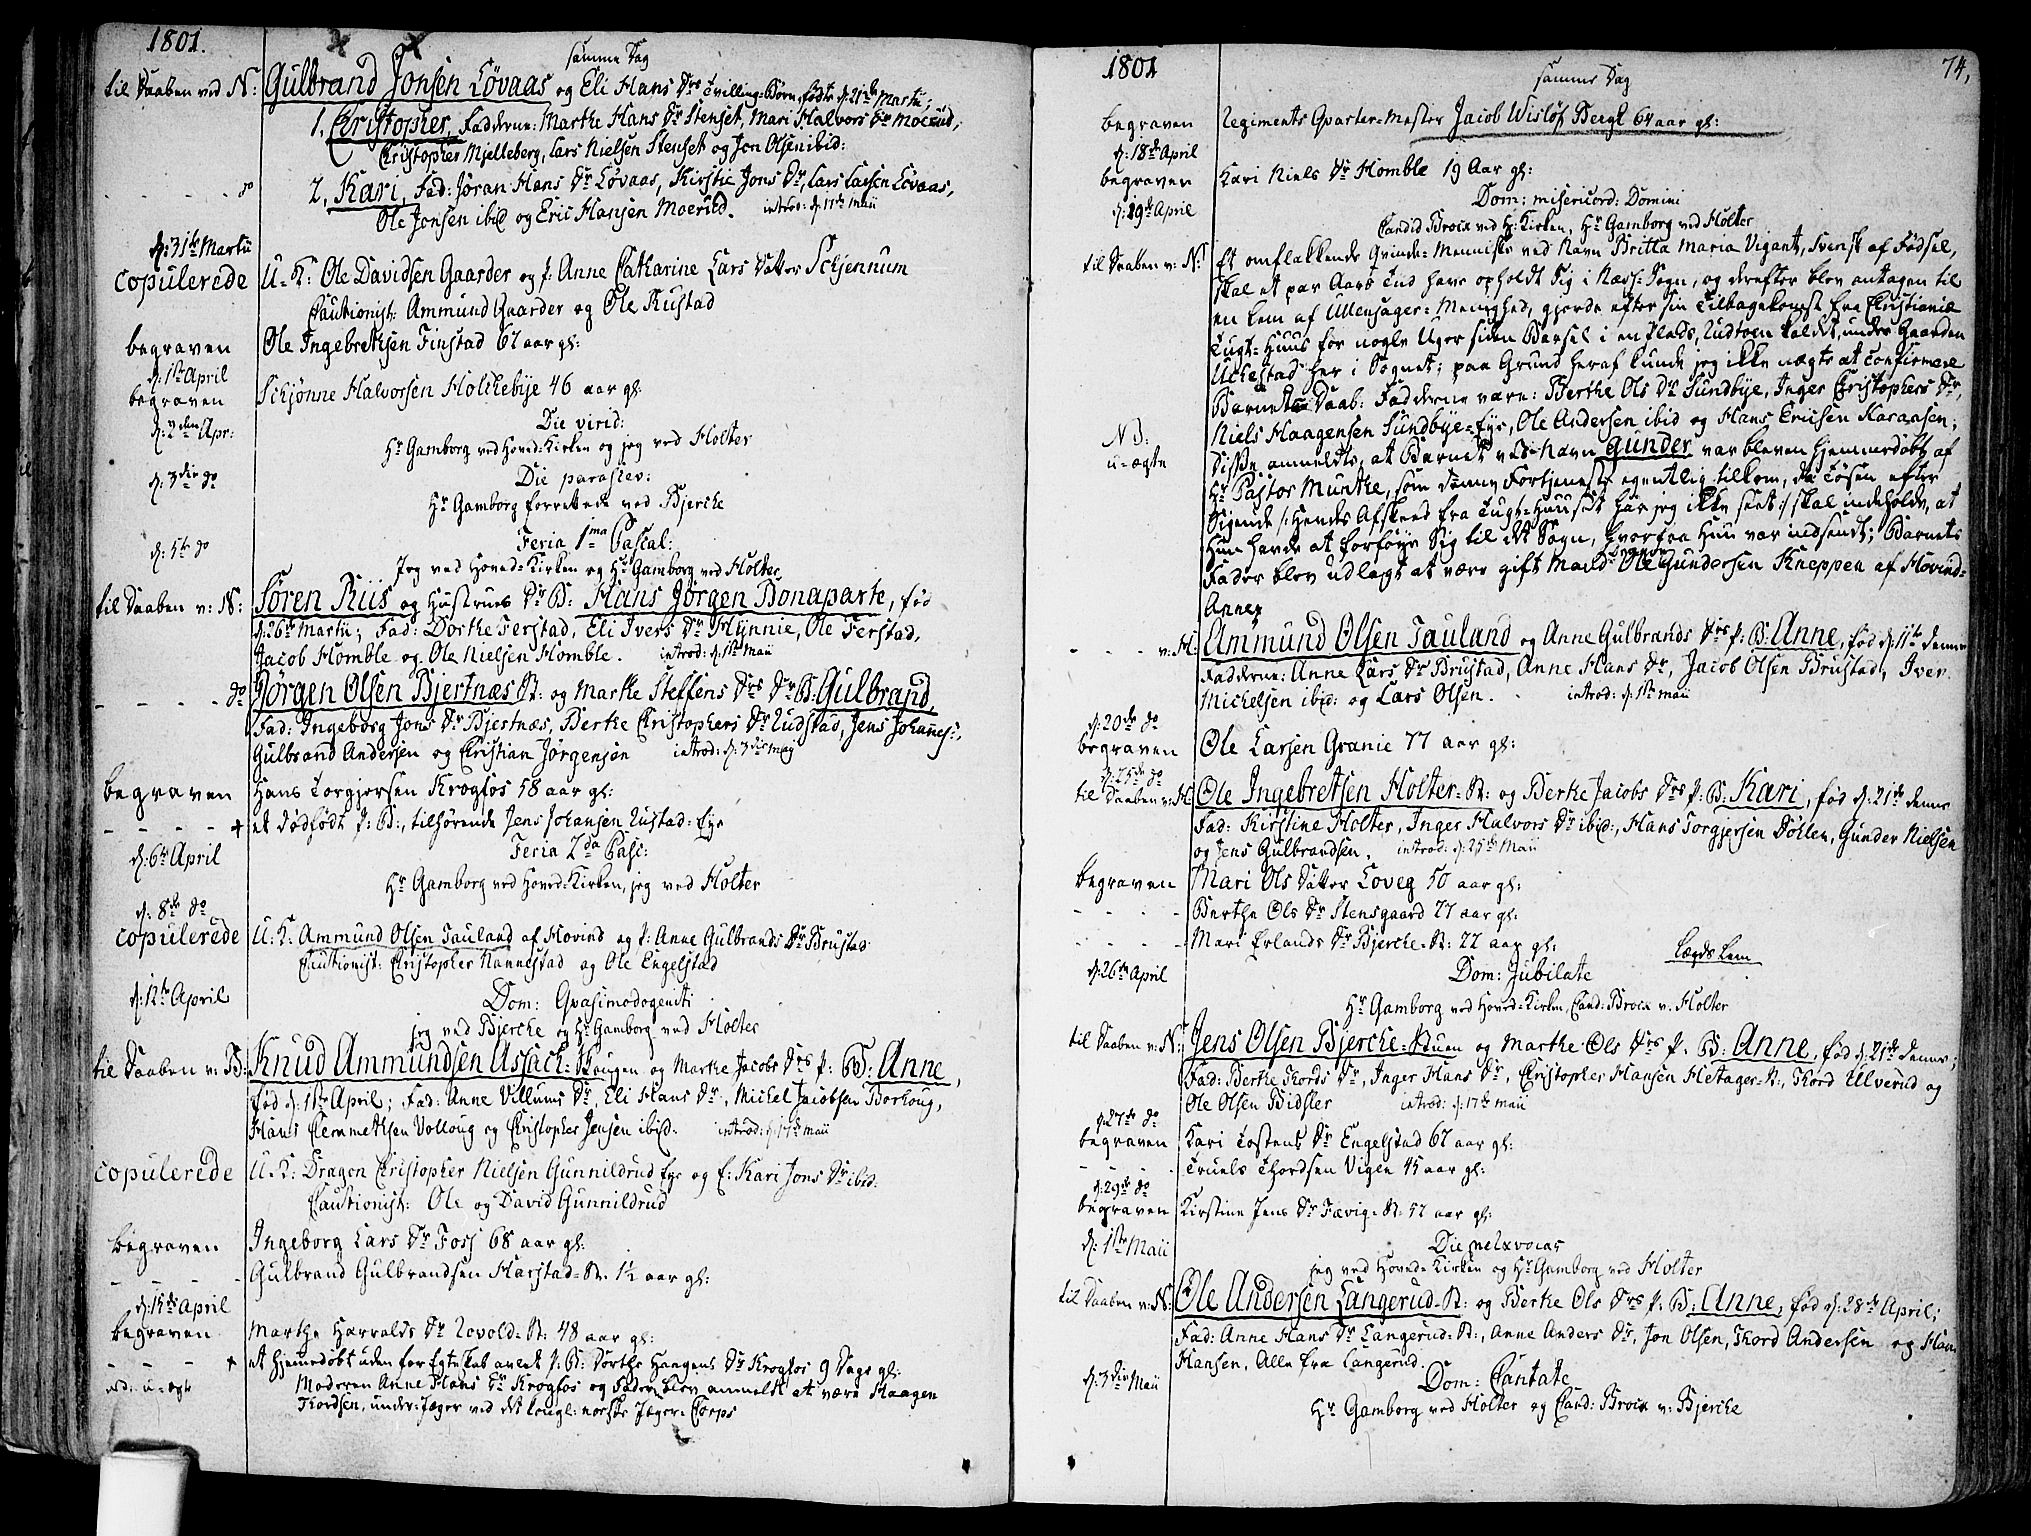 1801.
samme Dag
til Daaben ved N: Gulbrand Jonsen Løvaas og Eli Hans Drs Tvilling-Børn, fødte d: 21de Martii;
1. Christopher, Fadderne: Marthe Hans Dr Stenset, Mari Halvors Dr Moerud,
Christopher Mjelleberg, Lars Nielsen Stenset og Jon Olsen ibid:
- - - do 2. Kari, Fad: Jøran Hans Dr Løvaas, Kirstie Jons Dr, Lars Larsen Løvaas,
Ole Jonsen ibid og Eric Hansen Moerud. introd: d: 17de Maii
d: 31te Martii
copulerede U: K: Ole Davidsen Gaarder og P: Anne Catharine Lars Datter Schjennum
Cautionist: Ammund Gaarder og Ole Rustad
begraven Ole Ingebretsen Finstad 67 aar gl:
d: 1ste April
begraven Schjønne Halvorsen Holchebye 46 aar gl:
d: 2den Apr: Die virid:
Hr Gamborg ved Hoved-Kirken og jeg ved Holter
d: 3die do Die parascev:
Hr Gamborg forrettede ved Bjerche
d: 5te do Feria 1ma Pascal:
Jeg ved Hoved-Kirken og Hr Gamborg ved Holter
til Daaben v: N: Søren Riis og Hustrues Dr B: Hans Jørgen Bonaparte, fød
d: 26de Martii; Fad: Dorthe Ferstad, Eli Ivers Dr Hynnie, Ole Ferstad,
Jacob Homble og Ole Nielsen Homble. introd: d: 1ste Maii
- - - - do Jørgen Olsen Bjertnæs St: og Marthe Steffens Drs Dr B: Gulbrand,
Fad: Ingeborg Jons Dr Bjertnæs, Berthe Christophers Dr Rudstad, Jens Johannes:,
Gulbrand Andersen og Christian Jørgensen introd: d: 3die May
begraven Hans Torgjersen Krogfos 58 aar gl:
- - - - + et dødfødt P: B:, tilhørende Jens Johansen Rustad-Eye
d: 6te April Feria 2da Pasc:
Hr Gamborg ved Hoved-Kirken, jeg ved Holter
d: 8de do
copulerede U: K: Ammund Olsen Tauland af Hovind og P: Anne Gulbrands Dr Brustad
Cautionist: Christopher Nannestad og Ole Engelstad
d: 12te April Dom: Qvasimodogeniti
jeg ved Bjerche og Hr Gamborg ved Holter
til Daaben v: B: Knud Ammundsen Assach-Haugen og Marthe Jacobs Drs P: B: Anne,
fød d: 1ste April; Fad: Anne Villums Dr, Eli Hans Dr, Michel Jacobsen Borhoug,
Hans Clemmethsen Volloug og Christopher Jensen ibid. introd: d: 17de Maii
copulerede U: K: Dragon Christopher Nielsen Gunnildrud Eye og E: Kari Jons Dr ibid:
Cautionist: Ole og David Gunnildrud
begraven Ingeborg Lars Dr Foss 68 aar gl:
- - - Gulbrand Gulbrandsen Harstad-St. 1½ aar gl:
d: 15de April
begraven Marthe Harralds Dr Lovold-St: 48 aar gl:
- - - + et hjemmedøbt uden for Egteskab avlet P: B: Dorthe Haagens Dr Krogfos 9 Dage gl:
nb: u-ægte Moderen Anne Hans Dr Krogfos og Fader blev anmeldt at være Haagen
Thordsen, under-Jæger ved det kongl: norske Jæger-Corps
1801
74,
samme Dag
begraven Regiments Qvarter-Mester Jacob Wisløf Bergl 64 aar gl:
d: 18de April
begraven Kari Niels Dr Homble 19 Aar gl:
d: 19de April Dom: misericord: Domini
Candid Broch ved H: Kirken, Hr Gamborg ved Holter
til Daaben v: N: Et omflakkende Qvinde-Menniske ved Navn Britta Maria Vigant, Svensk af Fødsel,
skal et par Aars Tid have opholdt sig i Næss-Sogn, og derefter blev antagen til
en Lem af Ullensager-Menighed, gjorde efter sin Tilbagekomst fra Christianiæ
Tugt-Huus for nogle Uger siden Barsel i en Plads, Rudtoen kaldet, under Gaarden
Uckestad her i Sognet; paa Grund heraf kunde jeg ikke nægte at confirmere
Barnets Daab: Fadderne vare: Berthe Ols Dr Sundbye, Inger Christophers Dr,
Niels Haagensen Sundbye-Eye, Ole Andersen ibid og Hans Ericsen Karaasen;
NB: u-ægte Disse anmeldte, at Barnet ved Navn Gunder var bleven hjemmedøbt af
Hr Pastor Munthe, som denne Fortjeneste egentlig tilkom, da Tøsen efter
Sigende /: Hendes Afskeed fra Tugt-Huuset har jeg ikke seet :/ skal indeholde, at
Hun havde at forføye sig til det Sogn, hvorfra Hun var indsendt; Barnets
Fader blev udlagt at være gift Mand Ole Gundersen Kneppen af Hovind-
Annex
- - - v: H: Ammund Olsen Tauland og Anne Gulbrands Drs P: B: Anne, fød d: 11te denne
Fadderne: Anne Lars Dr Brustad, Anne Hans Dr, Jacob Olsen Brustad, Iver
Michelsen ibid: og Lars Olsen. introd: d: 1ste Maii
d: 20de do
begraven Ole Larsen Granie 77 aar gl:
d: 25de do
til Daaben v: H: Ole Ingebretsen Holter-St: og Berthe Jacobs Drs P: B: Kari, fød d: 21de denne
Fad: Kirstine Holter, Inger Halvors Dr ibid:, Hans Torgjersen Døhlen, Gunder Nielsen
og Jens Gulbrandsen. introd: d: 25de Maii
begraven Mari Ols Datter Loveg 50 aar gl:
- - - - Berthe Ols Dr Stensgaard 77 aar gl:
- - - - Mari Erlands Dr Bjerche-St: 22 aar gl: Lægds Lem
d: 26de April Dom: Jubilate
Hr Gamborg ved Hoved-Kirken, Cand: Broch v: Holter
til Daaben v: N: Jens Olsen Bjerche-Duen og Marthe Ols Drs P: B: Anne, fød d: 21de denne;
Fad: Berthe Thords Dr, Inger Hans Dr, Christopher Hansen Hetager-St:, Thord Ulverud og
Ole Olsen Bidsler introd: d: 17de Maii
d: 27de do
begraven Kari Tostens Dr Engelstad 67 aar gl:
- - - Truels Thordsen Vigen 45 aar gl:
d: 29de do
begraven Kirstine Jens Dr Fævig-St: 57 aar gl:
d: 1ste Maii Die
jeg ved Hoved-Kirken og Hr Gamborg ved Holter
til Daaben v: N: Ole Andersen Langerud-St: og Berthe Ols Drs P: B: Anne, fød d: 28de April;
Fad: Anne Hans Dr Langerud-St:, Anne Anders Dr, Jon Olsen, Thord Andersen og Hans
Hansen, Alle fra Langerud.
d: 3die Maii Dom: Cantate
Hr Gamborg ved Holter og Cand: Broch v: Bjerche